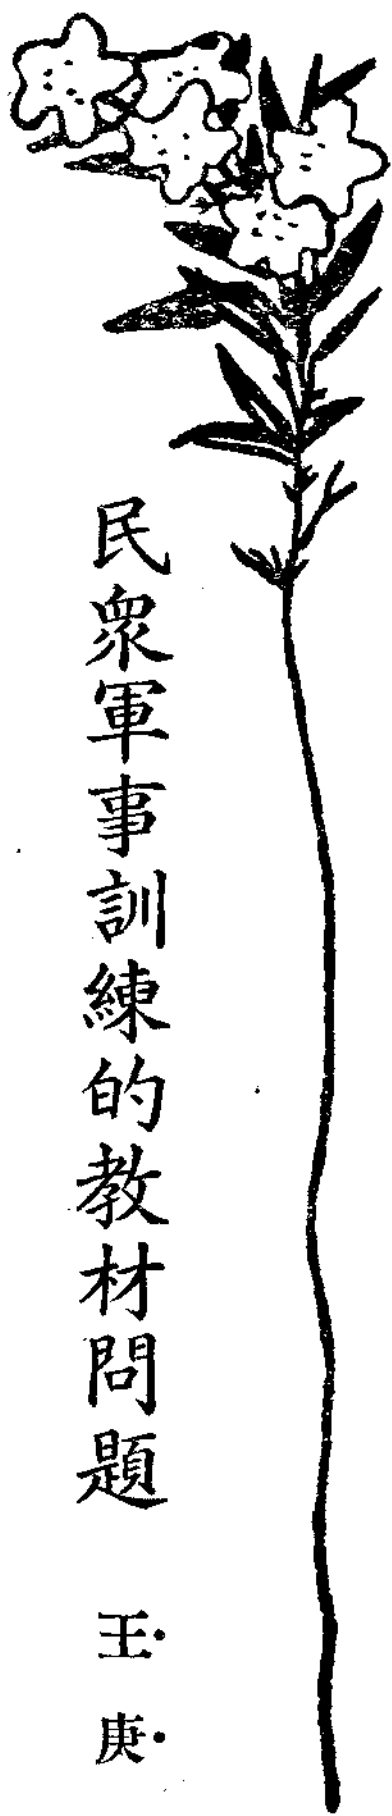 民眾軍事訓練的教材問題 王庚